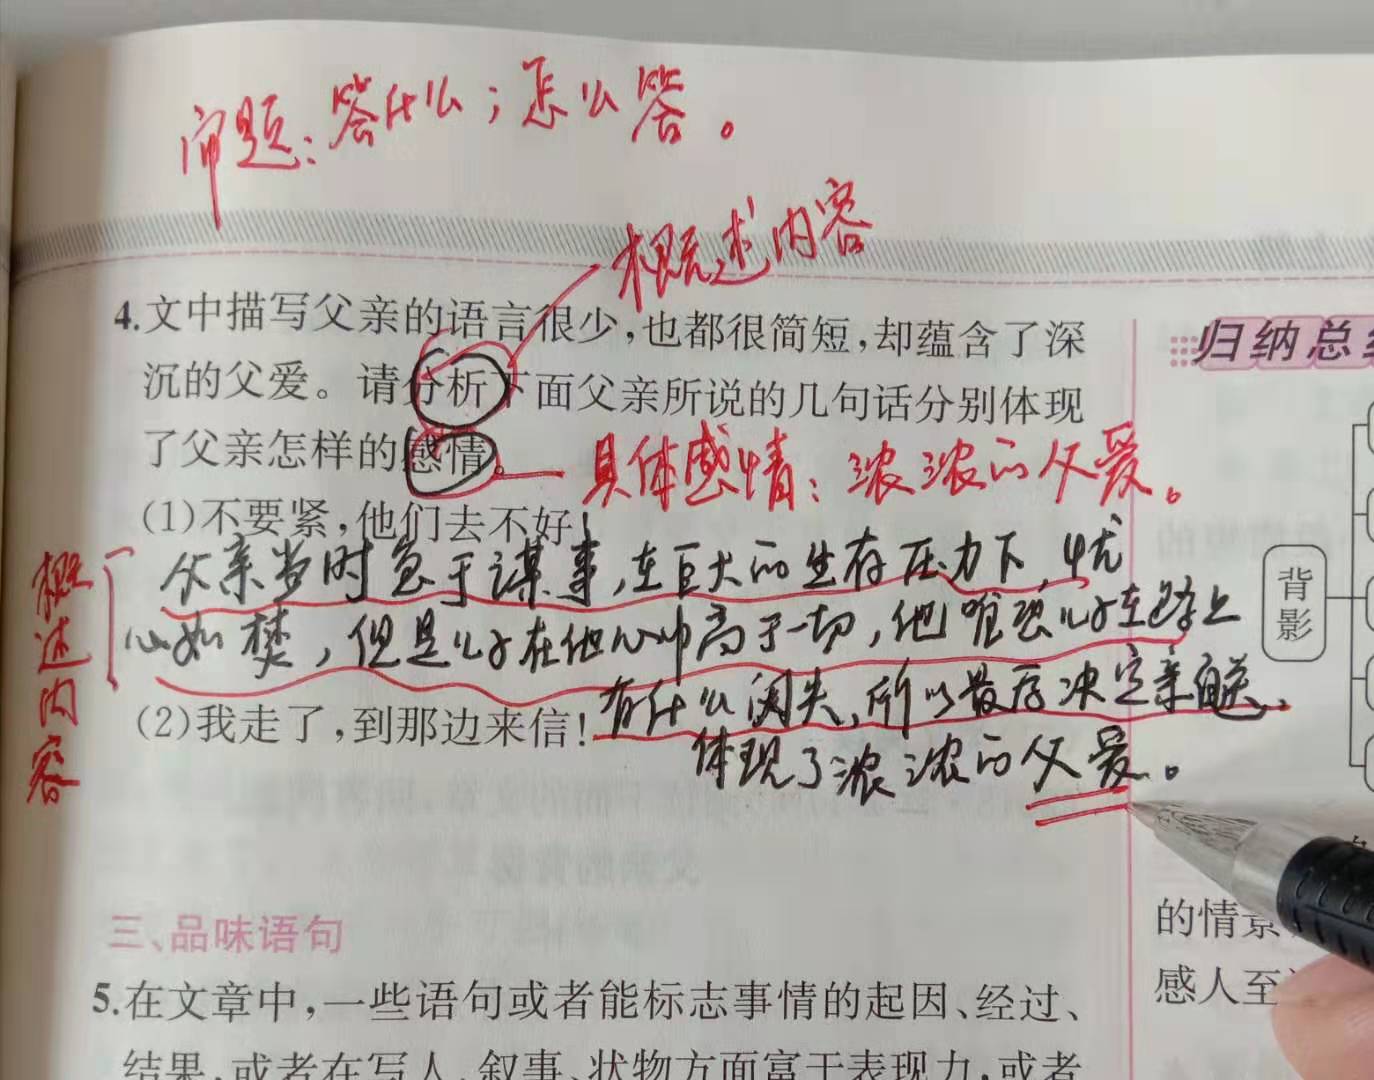 问题：答什么；怎么答。
概述内容
4.文中描写父亲的语言很少，也都很简短，却蕴含了深
沉的父爱。请分析下面父亲所说的几句话分别体现
了父亲怎样的感情。
具体感情：浓浓的父爱。
(1)不要紧，他们去不好！
概述内容
父亲当时急于谋事，在巨大的生存压力下，忧
心如焚，但是儿子在他心中高于一切，他唯恐儿子在路上
有什么闪失，所以最后决定亲自送，
体现了浓浓的父爱。
(2)我走了，到那边来信！
三、品味语句
5.在文章中，一些语句或者能标志事情的起因、经过、
结果，或者在写人、叙事、状物方面富于表现力，或者
归纳总结
背影
的情景
感人至